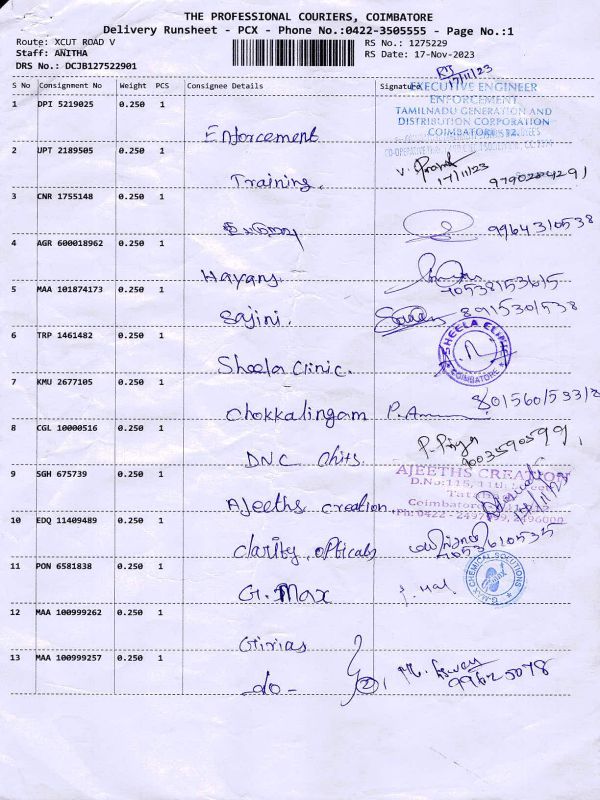 THE PROFESSIONAL COURIERS, COIMBATORE
Delivery Runsheet - PCX - Phone No.:0422-3505555 - Page No.:1
Route: XCUT ROAD V
RS No.: 1275229
Staff: ANITHA
RS Date: 17-Nov-2023
DRS No.: DCJB127522901
17/11/23
S No Consignment No Weight PCS Consignee Details Signature
EXECUTIVE ENGINEER
ENFORCEMENT
TAMILNADU GENERATION AND
DISTRIBUTION CORPORATION
COIMBATORE 12.
1 DPI 5219025 0.250 1
Enforcement
2 UPT 2189505 0.250 1
Training.
17/11/23
3 CNR 1755148 0.250 1
9964310538
4 AGR 600018962 0.250 1
Hayans.
7053815 3615
5 MAA 101874173 0.250 1
Sajini.
8915301538
6 TRP 1461482 0.250 1
Sheela Clinic.
SHEELA CLINIC
COIMBATORE
7 KMU 2677105 0.250 1
Chokkalingam
8 CGL 10000516 0.250 1
DNC chits.
P. Priya
9003590599
9 SGH 675739 0.250 1
Ajeeths creation.
AJEETHS CREATION
D.No:115, 11th Street
Coimbatore
Ph: 0422 - 2497499, 2496000
10 EDQ 11409489 0.250 1
Clarity opticals
7053610535
11 PON 6581838 1
G.Max
G-MAX CHEMICAL SOLUTIONS
12 MAA 100999262 0.250 1
Girias
13 MAA 100999257 0.250 1
do-
2